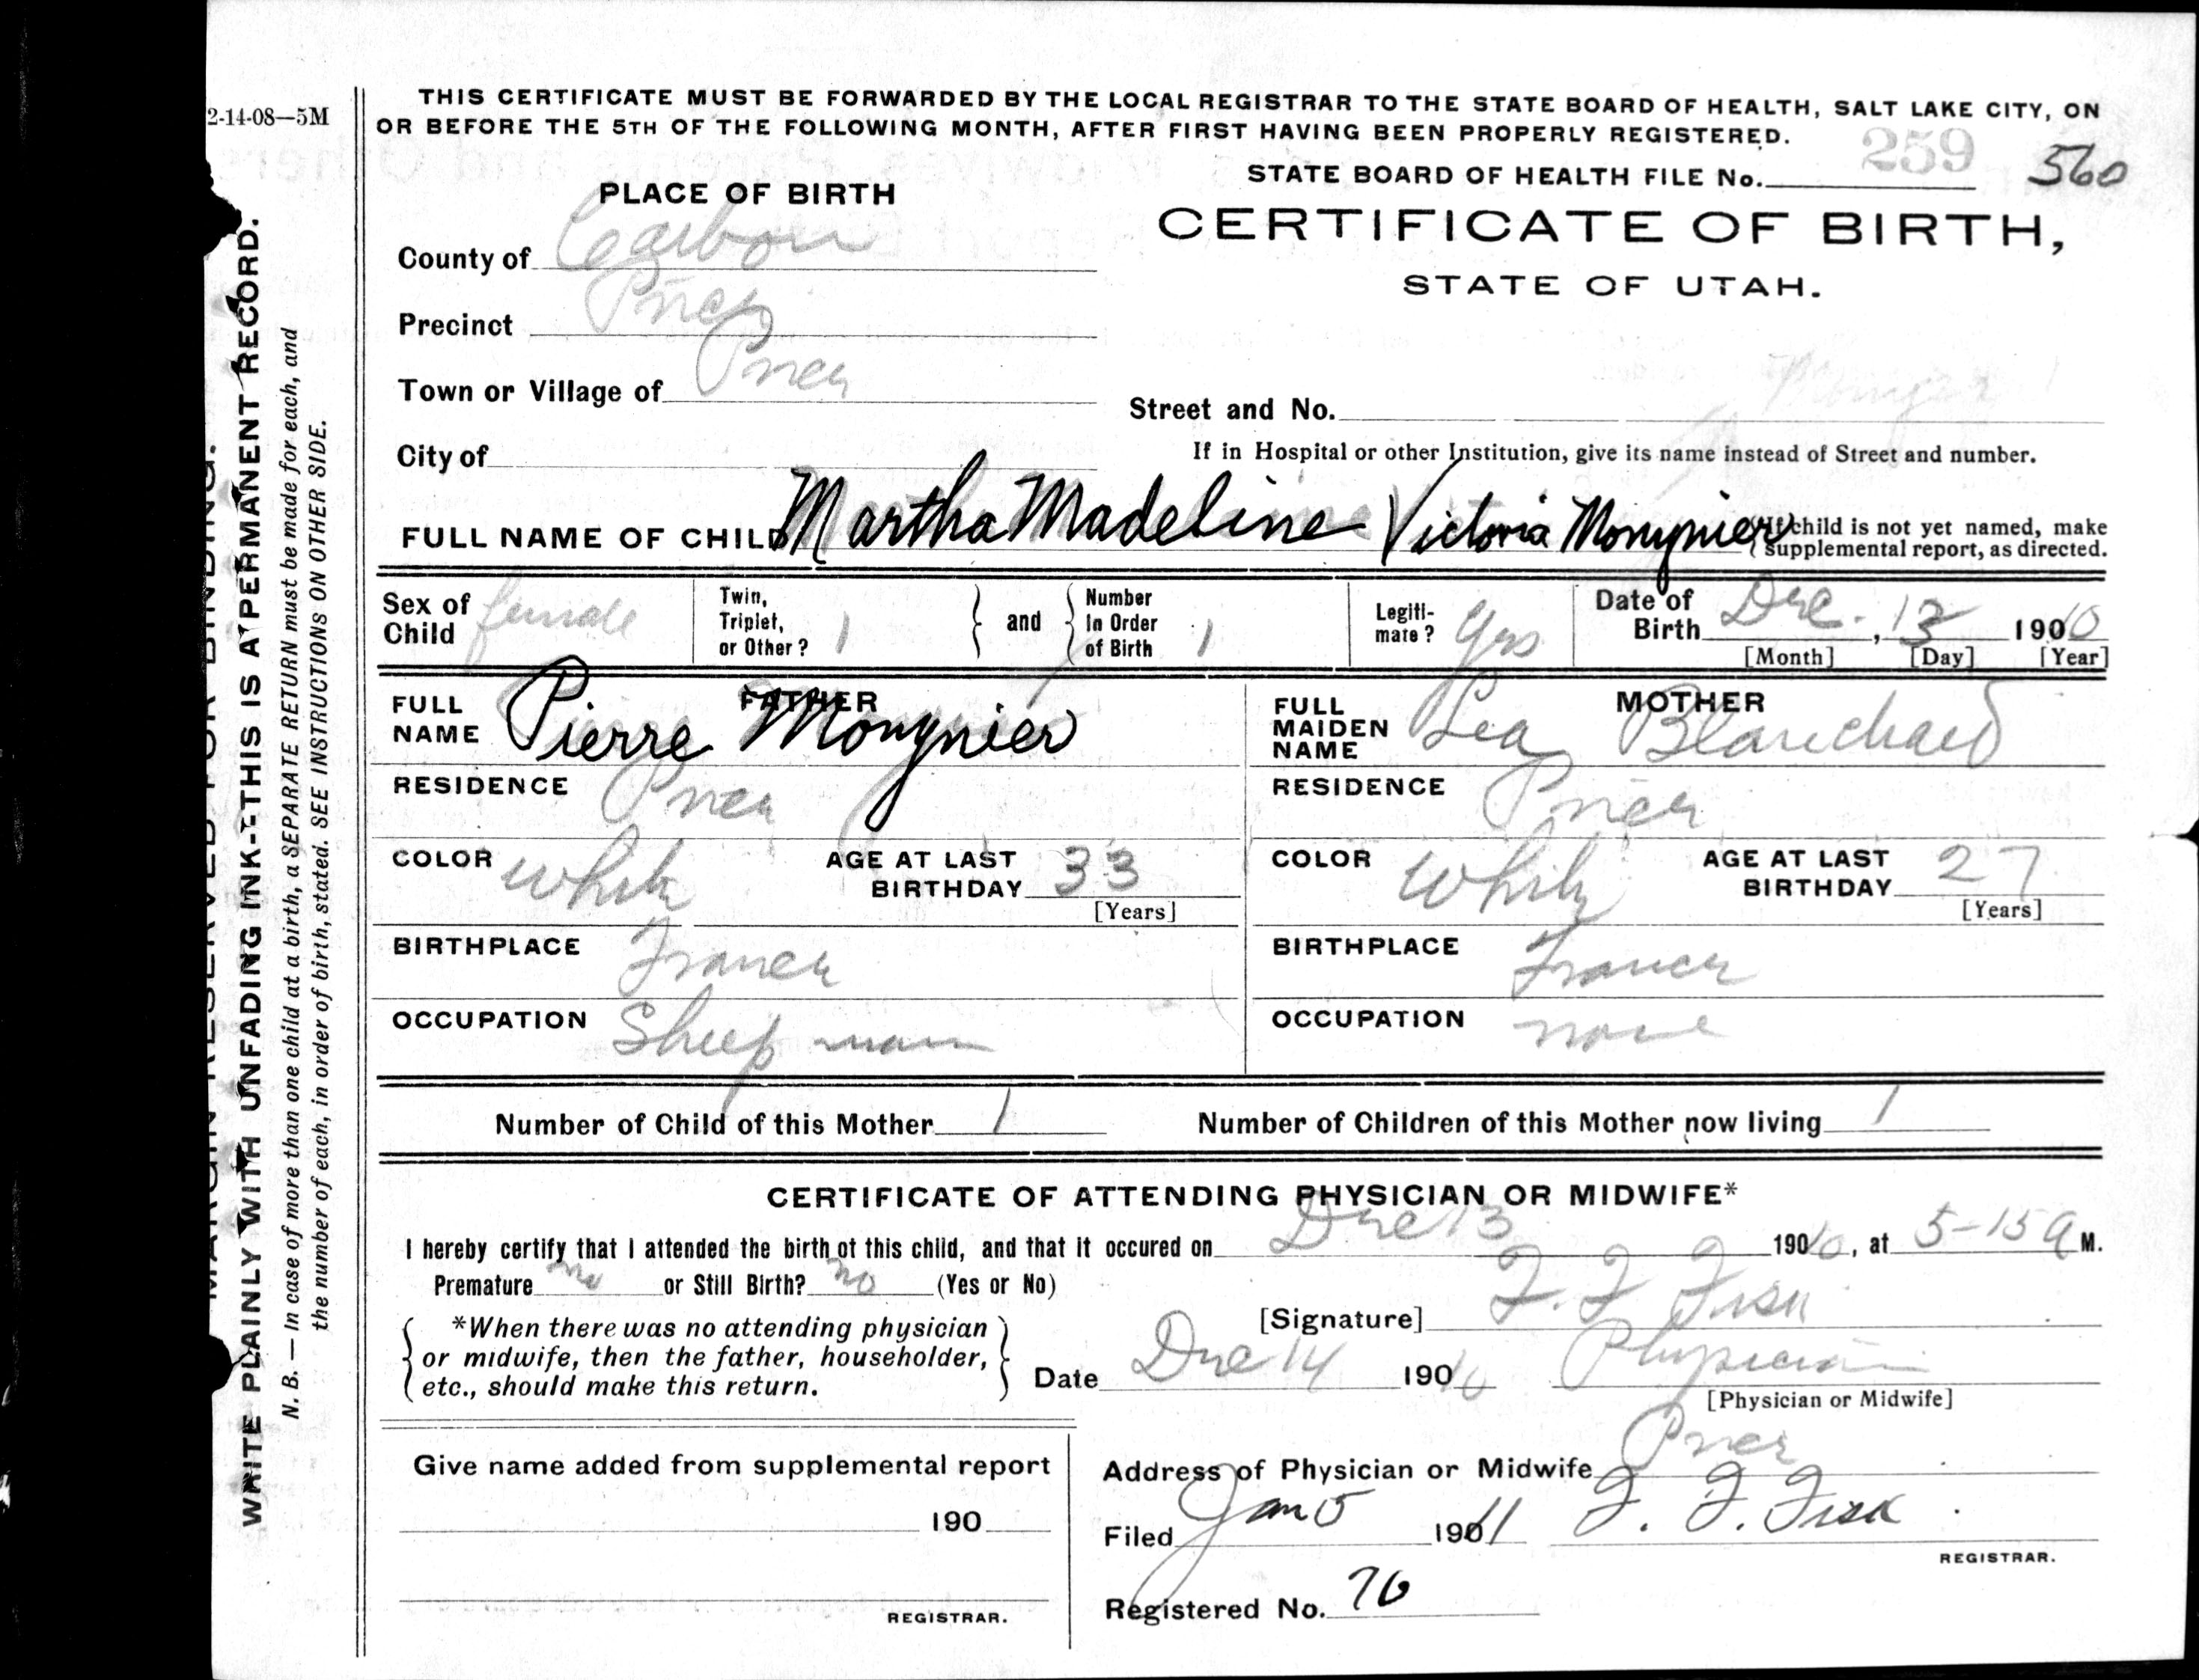 2-14-08—5M
THIS CERTIFICATE MUST BE FORWARDED BY THE LOCAL REGISTRAR TO THE STATE BOARD OF HEALTH, SALT LAKE CITY, ON
OR BEFORE THE 5TH OF THE FOLLOWING MONTH, AFTER FIRST HAVING BEEN PROPERLY REGISTERED.
STATE BOARD OF HEALTH FILE No. 259 560
PLACE OF BIRTH
CERTIFICATE OF BIRTH,
STATE OF UTAH.
County of Carbon
Precinct Price
Town or Village of Price
Street and No.
City of
If in Hospital or other Institution, give its name instead of Street and number.
FULL NAME OF CHILD Martha Madeline Victoria Mougnier
(If child is not yet named, make
supplemental report, as directed.
Sex of Child female
Twin, Triplet, or Other? 1 and Number In Order of Birth 1
Legiti-mate? Yes
Date of Birth Dec. 13, 1910
[Month] [Day] [Year]
FATHER
FULL NAME Pierre Mougnier
RESIDENCE Price
COLOR White AGE AT LAST BIRTHDAY 33
[Years]
BIRTHPLACE France
OCCUPATION Sheep man
MOTHER
FULL MAIDEN NAME Lea Blanchard
RESIDENCE Price
COLOR White AGE AT LAST BIRTHDAY 27
[Years]
BIRTHPLACE France
OCCUPATION none
Number of Child of this Mother 1 Number of Children of this Mother now living 1
CERTIFICATE OF ATTENDING PHYSICIAN OR MIDWIFE*
I hereby certify that I attended the birth of this child, and that it occured on Dec 13 1910, at 5-15 a M.
Premature no or Still Birth? no (Yes or No)
[Signature] F. F. Fisk
*When there was no attending physician
or midwife, then the father, householder,
etc., should make this return.
Date Dec 14 1910 Physician
[Physician or Midwife]
Give name added from supplemental report
190
REGISTRAR.
Address of Physician or Midwife Price
Filed Jan 5 1911 F. F. Fisk
REGISTRAR.
Registered No. 76
MARGIN RESERVED FOR BINDING.
WRITE PLAINLY WITH UNFADING INK--THIS IS A PERMANENT RECORD.
N. B. — In case of more than one child at a birth, a SEPARATE RETURN must be made for each, and
the number of each, in order of birth, stated. SEE INSTRUCTIONS ON OTHER SIDE.